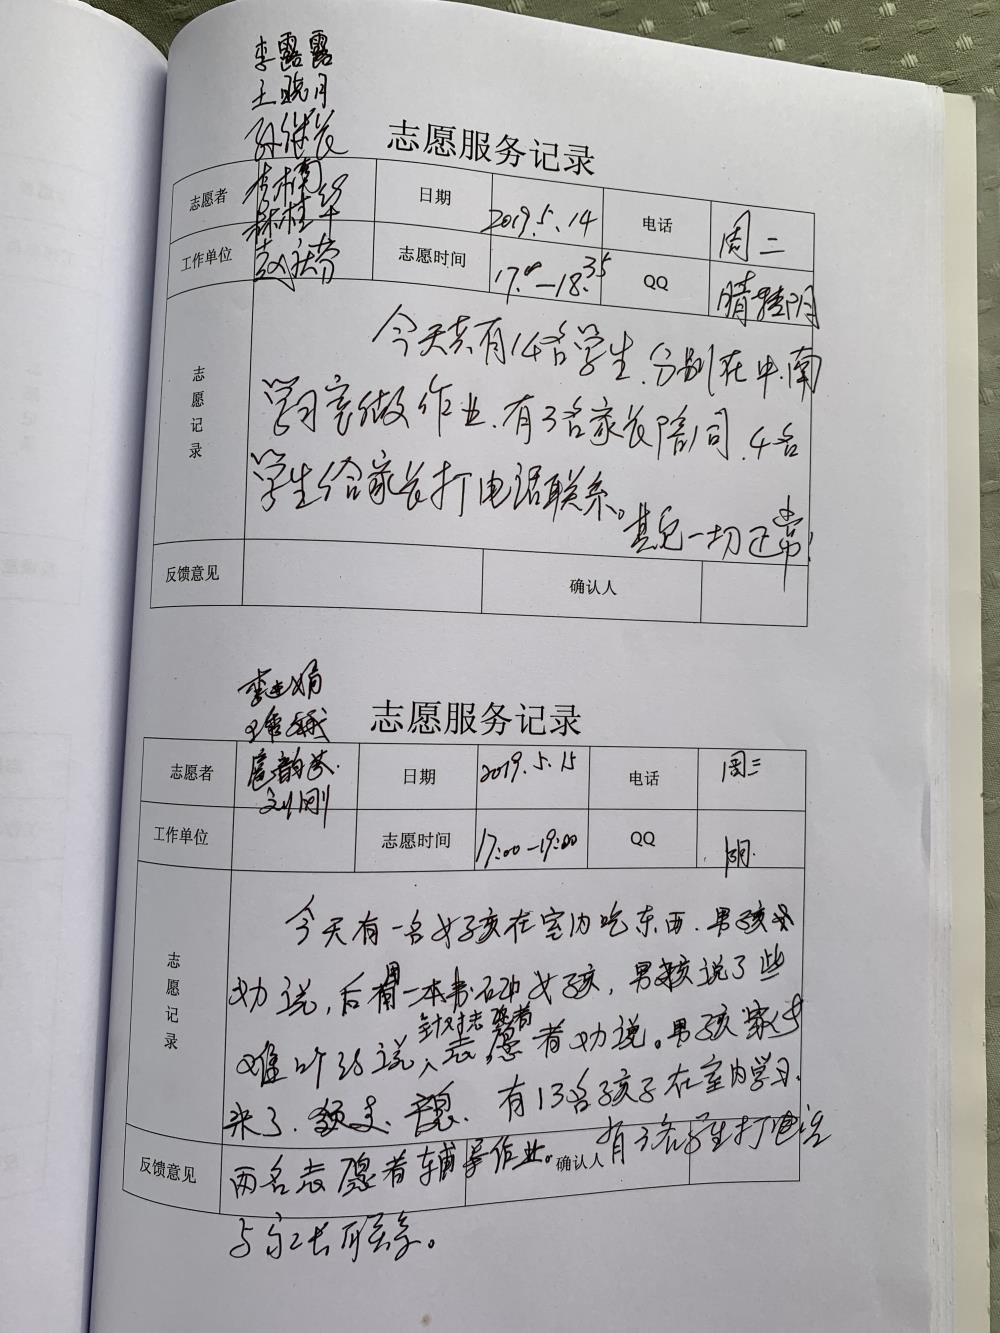 李露露
王晓月
孙继长
志愿服务记录
志愿者 李楠 日期 2019.5.14 电话 周二
林桂华
工作单位 赵庆芳 志愿时间 17.00—18.35 QQ 晴转阴
志愿记录
今天共有14名学生.分别在中.南
学习室做作业.有3名家长陪同.4名
学生给家长打电话联系。
其它一切正常!
反馈意见 确认人
李建娟
志愿服务记录
志愿者 扈韵芬. 日期 2019.5.15 电话 周三
刘刚
工作单位 志愿时间 17:00-19:00 QQ 阴.
志愿记录
今天有一名女孩在室内吃东西.男孩
劝说,后用一本书砸女孩,男孩说了些
针对志愿者
难听的话,志愿者劝说。男孩家长
来了. 有13名孩子在室内学习.
反馈意见 两名志愿者辅导作业。确认人 有3名学生打电话
与家长联系。